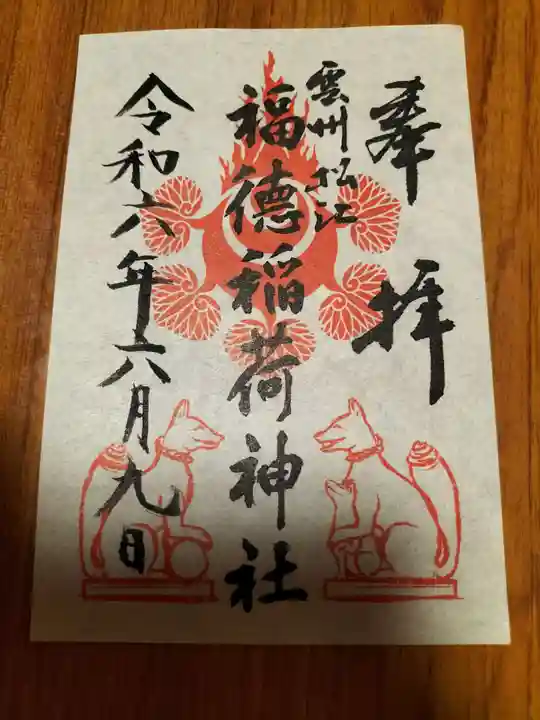 奉拝
雲州松江
福徳稲荷神社
令和六年六月九日